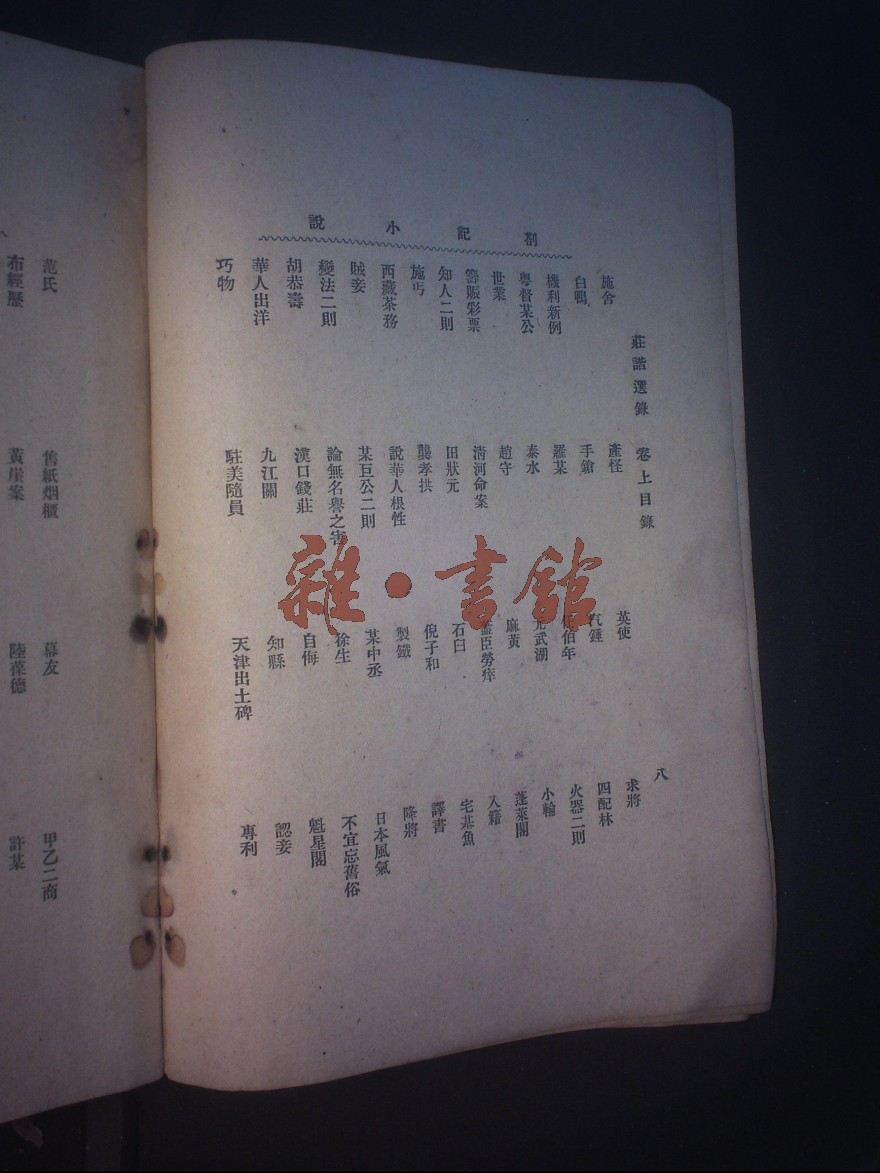 劄記小說
莊諧選錄 卷上目錄 八
施舍 產怪 英使 求將
白鴨 手鎗 汽錘 四配林
機利新例 羅某 伯年 火器二則
粵督某公 泰水 元武湖 小輪
世業 趙守 麻黃 蓬萊閣
籌賑彩票 清河命案 藎臣勞瘁 入籍
知人二則 田狀元 石臼 宅基魚
施丐 龔孝拱 倪子和 譯書
西藏茶務 說華人根性 製鐵 降將
賊妾 某巨公二則 某中丞 日本風氣
變法二則 論無名譽之害 徐生 不宜忘舊俗
胡恭壽 漢口錢莊 自悔 魁星閣
華人出洋 九江關 知縣 認妾
巧物 駐美隨員 天津出土碑 專利
范氏 舊紙烟櫃 幕友 甲乙二商
布經歷 黃崖案 陸葆德 許某
雜·書館